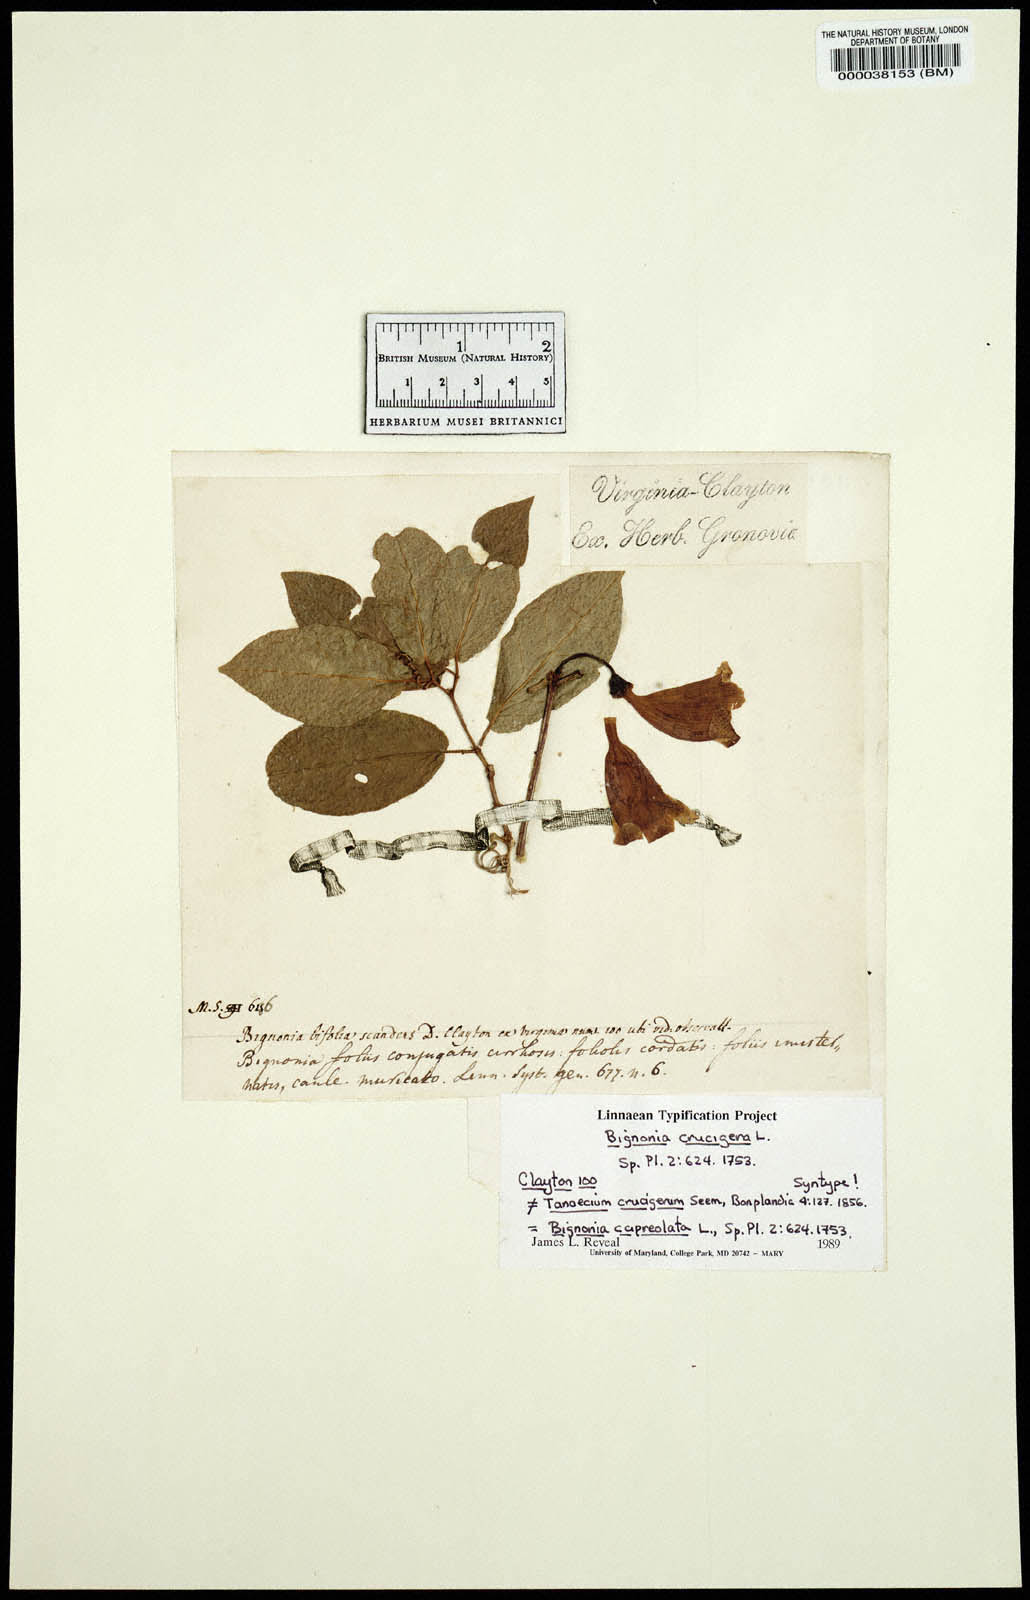 THE NATURAL HISTORY MUSEUM, LONDON
DEPARTMENT OF BOTANY
000038153 (BM)
1 2
BRITISH MUSEUM (NATURAL HISTORY)
1 2 3 4 5
HERBARIUM MUSEI BRITANNICI
Virginia-Clayton
Ex. Herb. Gronovic
M. S. 646
Bignonia bifolia scandens D. Clayton ex Virginia num. 100 ubi vid. observatt.
Bignonia foliis conjugatis cirrhosis: foliolis cordatis: foliis
caule muricato. Linn. Syst. gen. 677. n. 6.
Linnaean Typification Project
Bignonia crucigera L.
Sp. Pl. 2:624. 1753.
Clayton 100 Syntype!
≠ Tanaecium crucigerum Seem, Bonplandia 4:127. 1856.
= Bignonia capreolata L., Sp. Pl. 2:624. 1753.
James L. Reveal 1989
University of Maryland, College Park, MD 20742 – MARY